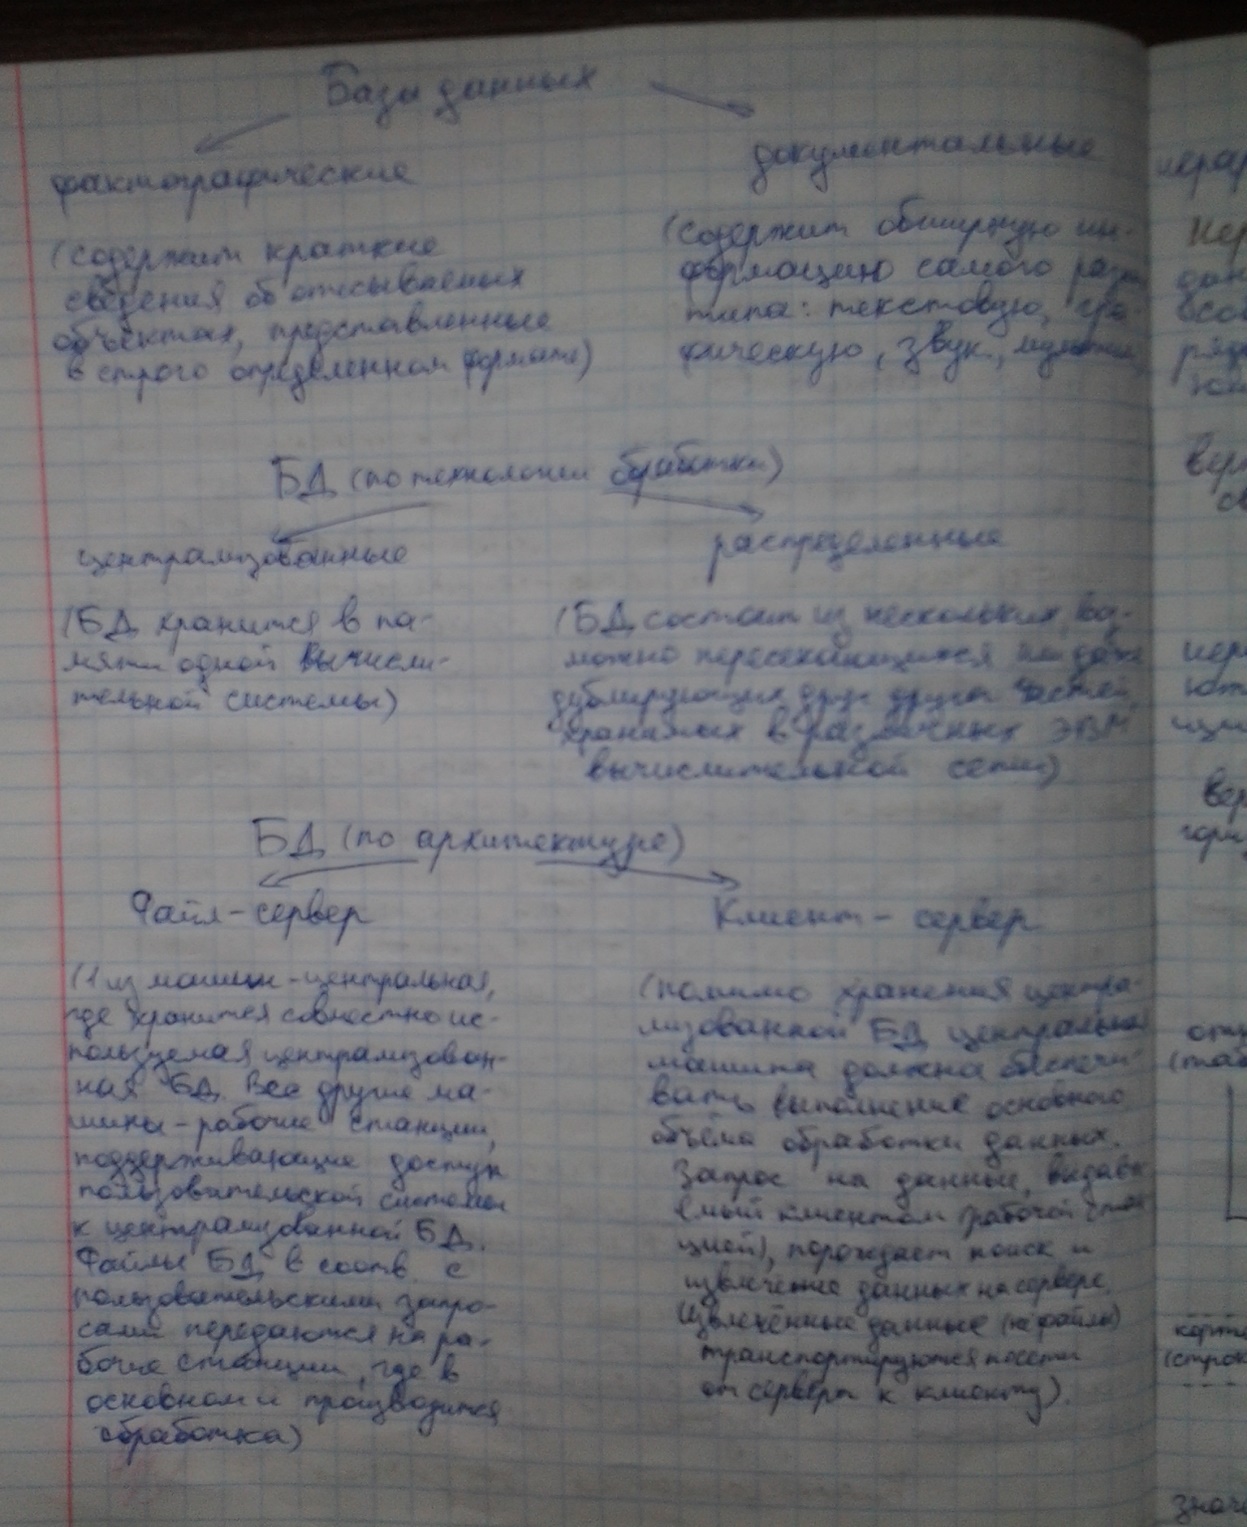 Базы данных
фактографические
документальные
(содержит краткие
сведения об описываемых
объектах, представленные
в строго определенном формате)
(содержит обширную ин-
формацию самого разн
типа: текстовую, гра-
фическую, звук, мультим
БД (по технологии обработки)
централизованные
распределенные
(БД хранится в па-
мяти одной вычисли-
тельной системы)
(БД состоит из нескольких, воз-
можно пересекающихся или даже
дублирующих друг друга частей,
хранимых в различных ЭВМ
вычислительной сети)
БД (по архитектуре)
Файл-сервер
Клиент-сервер
(1 из машин - центральная,
где хранится совместно ис-
пользуемая централизован-
ная БД. Все другие ма-
шины - рабочие станции,
поддерживающие доступ
пользовательской системы
к централизованной БД.
Файлы БД в соотв. с
пользовательскими запро-
сами передаются на ра-
бочие станции, где в
основном и производится
обработка)
(помимо хранения центра-
лизованной БД центральная
машина должна обеспечи-
вать выполнение основного
объёма обработки данных.
Запрос на данные, выдава-
емый клиентом (рабочей стан
цией), порождает поиск и
извлечение данных на сервере.
Извлечённые данные (не файлы)
транспортируются по сети
от сервера к клиенту).